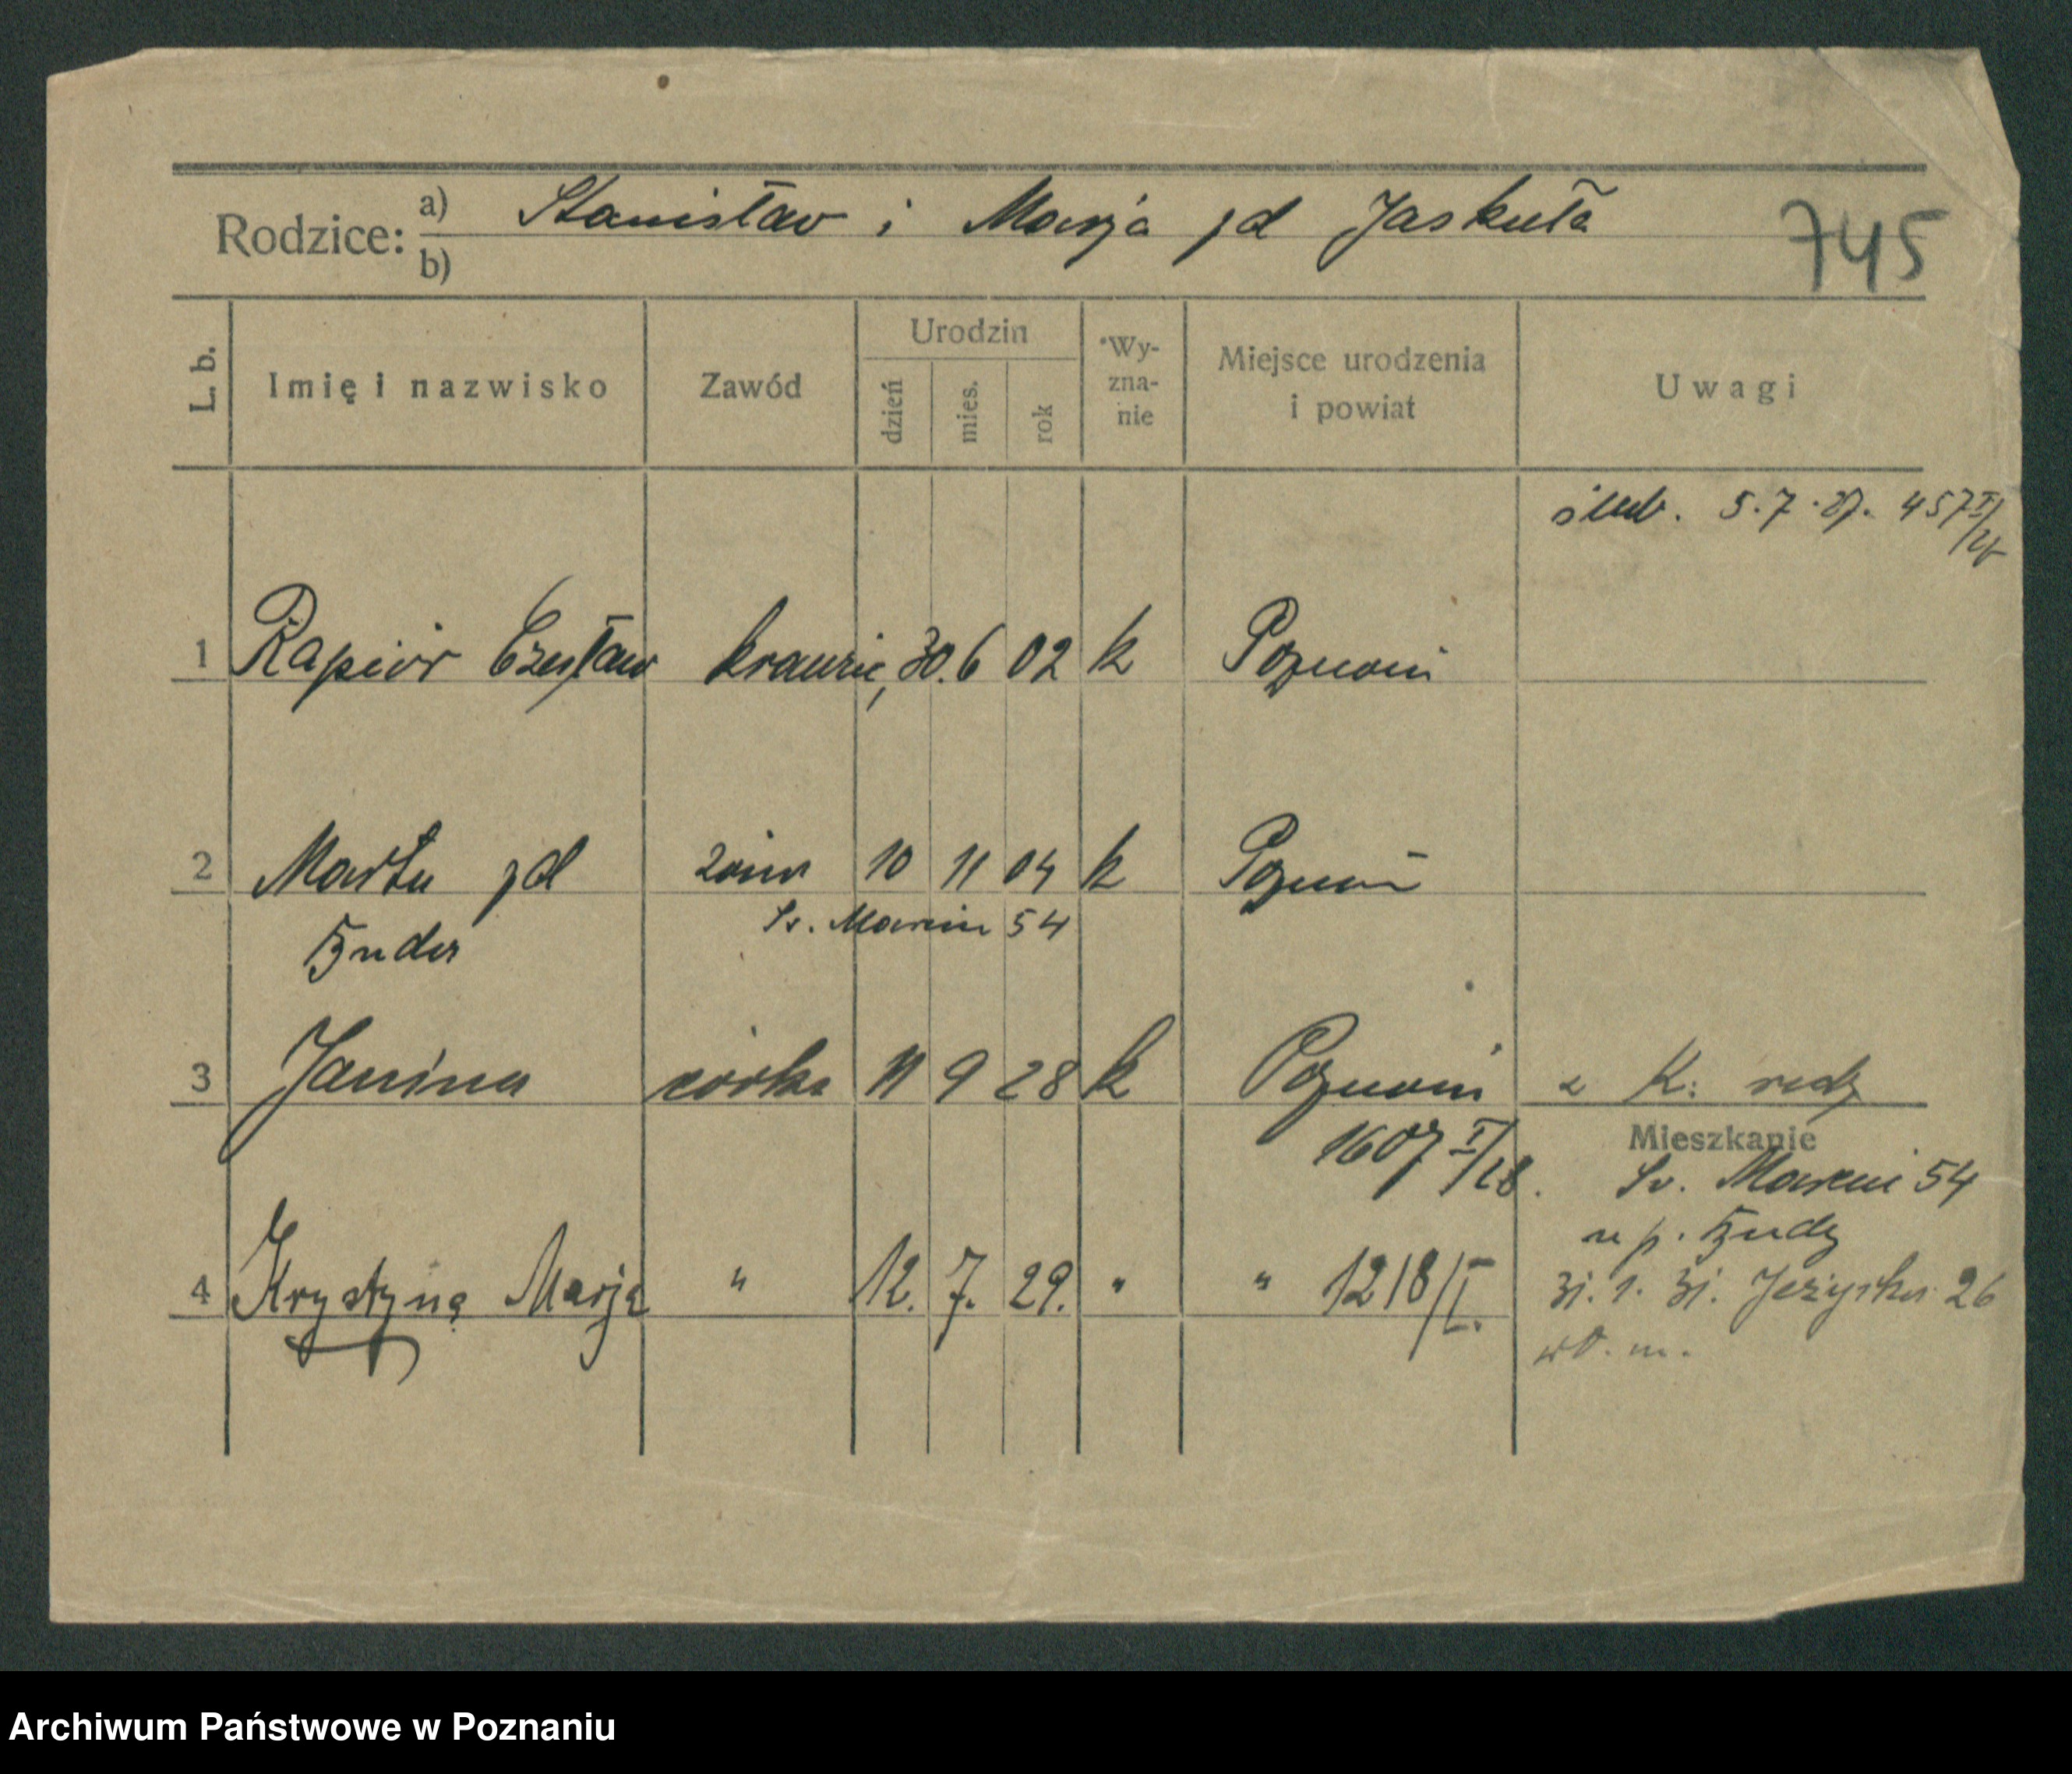 Rodzice: a) Stanisław i Marja zd Jaskuła
b)
745
L. b. Imię i nazwisko Zawód Urodzin dzień mies. rok Wy-zna-nie Miejsce urodzenia i powiat Uwagi
ślub. 5.7.27. 457 I/27
1 Rapior Czesław krawiec, 30. 6 02 k Poznań
2 Marta zd żona 10 11 04 k Poznań
Św. Marcin 54
3 Janina córka 11 9 28 k Poznań z K:
1607 I/28.
Mieszkanie
Św. Marcin 54
4 Krystyna Marja " 12. 7. 29. " " 1218/I.
31. 1. 31. Jeżycka 26
wł. m.
Archiwum Państwowe w Poznaniu